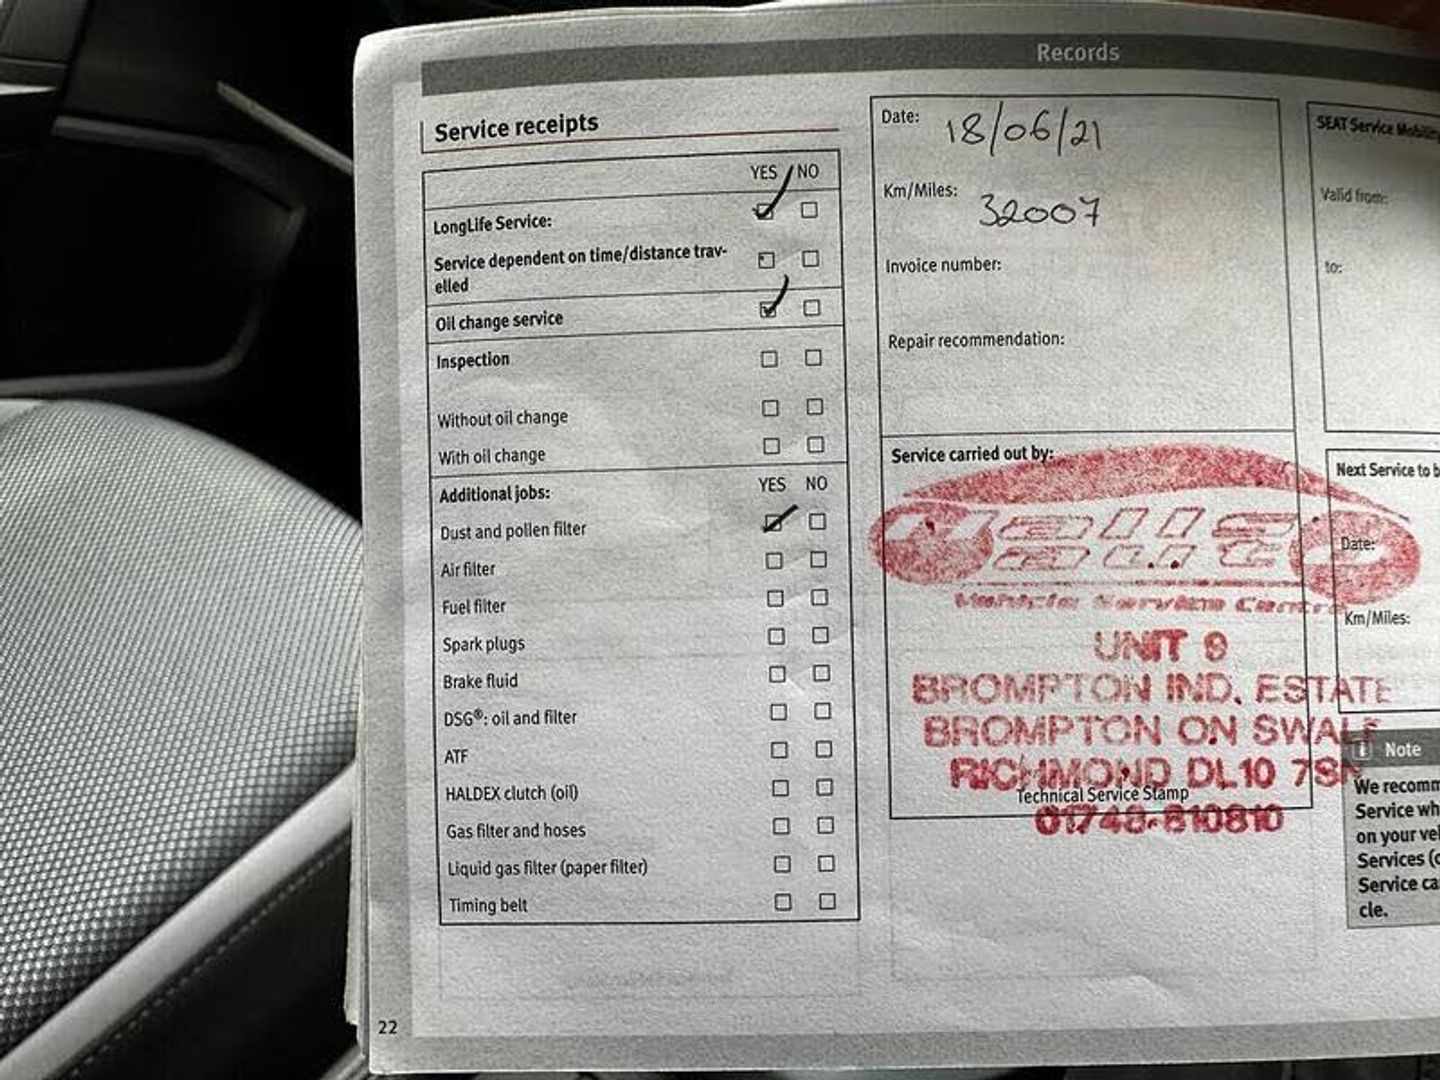 Records
Service receipts
YES NO
LongLife Service:
Service dependent on time/distance trav-
elled
Oil change service
Inspection
Without oil change
With oil change
Additional jobs:
YES NO
Dust and pollen filter
Air filter
Fuel filter
Spark plugs
Brake fluid
DSG®: oil and filter
ATF
HALDEX clutch (oil)
Gas filter and hoses
Liquid gas filter (paper filter)
Timing belt
22
Date: 18/06/21
Km/Miles: 32007
Invoice number:
Repair recommendation:
Service carried out by:
Vehicle Service Centre
UNIT 9
BROMPTON IND. ESTATE
BROMPTON ON SWALE
RICHMOND DL10 7SN
Technical Service Stamp
01748-810810
SEAT Service Mobility
Valid from:
to:
Next Service to b
Date:
Km/Miles:
i Note
We recomm
Service wh
on your veh
Services (o
Service ca
cle.